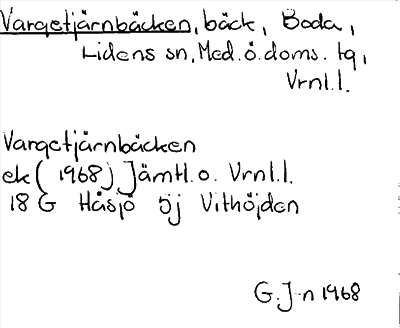 Vargetjärnbäcken, bäck, Boda,
Lidens sn, Med. ö. doms. tg,
Vrnl.l.
Vargetjärnbäcken
ek (1968) Jämtl. o. Vrnl.l.
18 G Håsjö 5j Vithöjden
G. J-n 1968